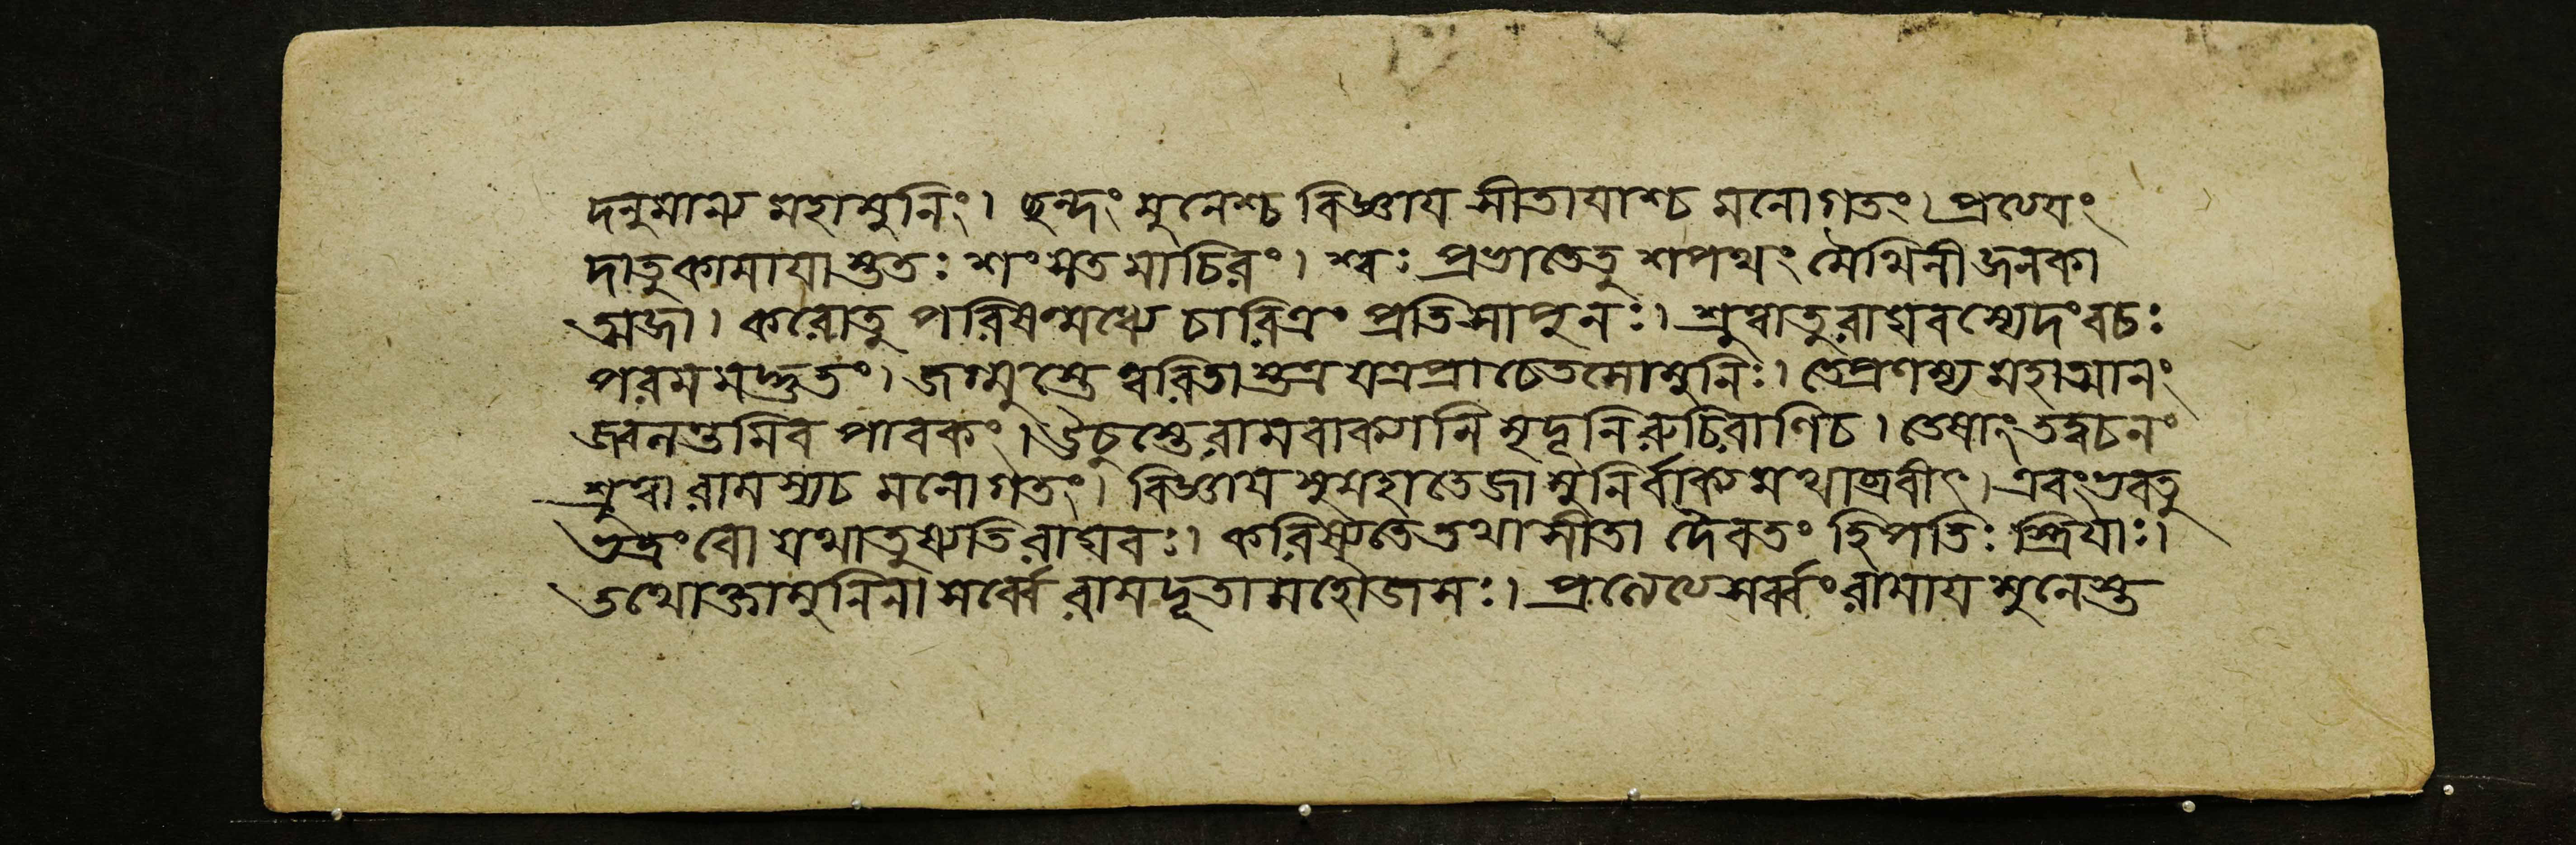 দনুমান্য মহামুনিং। ছন্দং মুনেশ্চ বিজ্ঞায সীতাযাশ্চ মনোগতং। প্রত্যযং
দাতুকামাযাস্তুতঃ শংসত মাচিরং। শ্বঃ প্রভাতেতু শপথং মৈথিলী জনকা
ত্মজা। করোতু পরিষন্মধ্যে চারিত্রং প্রতিসাপুনঃ। শ্রুত্বাতুরাঘবস্যেদংবচঃ
পরমমদ্ভুতং। জগ্মুস্তে ত্বরিতাস্তত্র যত্রপ্রাচেতসোমুনিঃ। তেপ্রণম্য মহাত্মানং
জ্বলন্তমিব পাবকং। ঊচুস্তে রামবাক্যানি মৃদূনি রুচিরাণিচ। তেষাং তদ্বচনং
শ্রুত্বা রামস্যচ মনোগতং। বিজ্ঞায সুমহাতেজা মুনির্বাক্যমথাব্রবীৎ। এবংভবতু
ভদ্রংবো যথাতুষ্যতি রাঘবঃ। করিষ্যতে তথা সীতা দৈবতং হি পতিঃ স্ত্রিযাঃ।
তথোক্তামুনিনা সর্ব্বে রামদূতা মহৌজসঃ। প্রত্যেত্য সর্ব্বং রামায মুনেস্তু